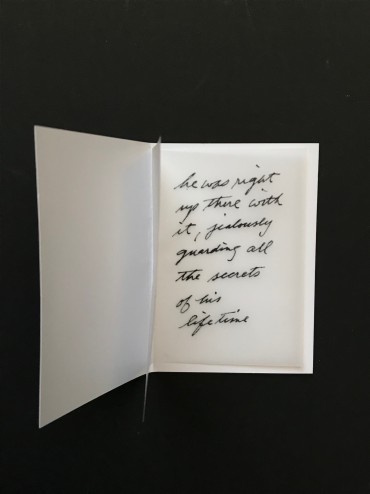 he was right
up there with
it, jealously
guarding all
the secrets
of his
lifetime